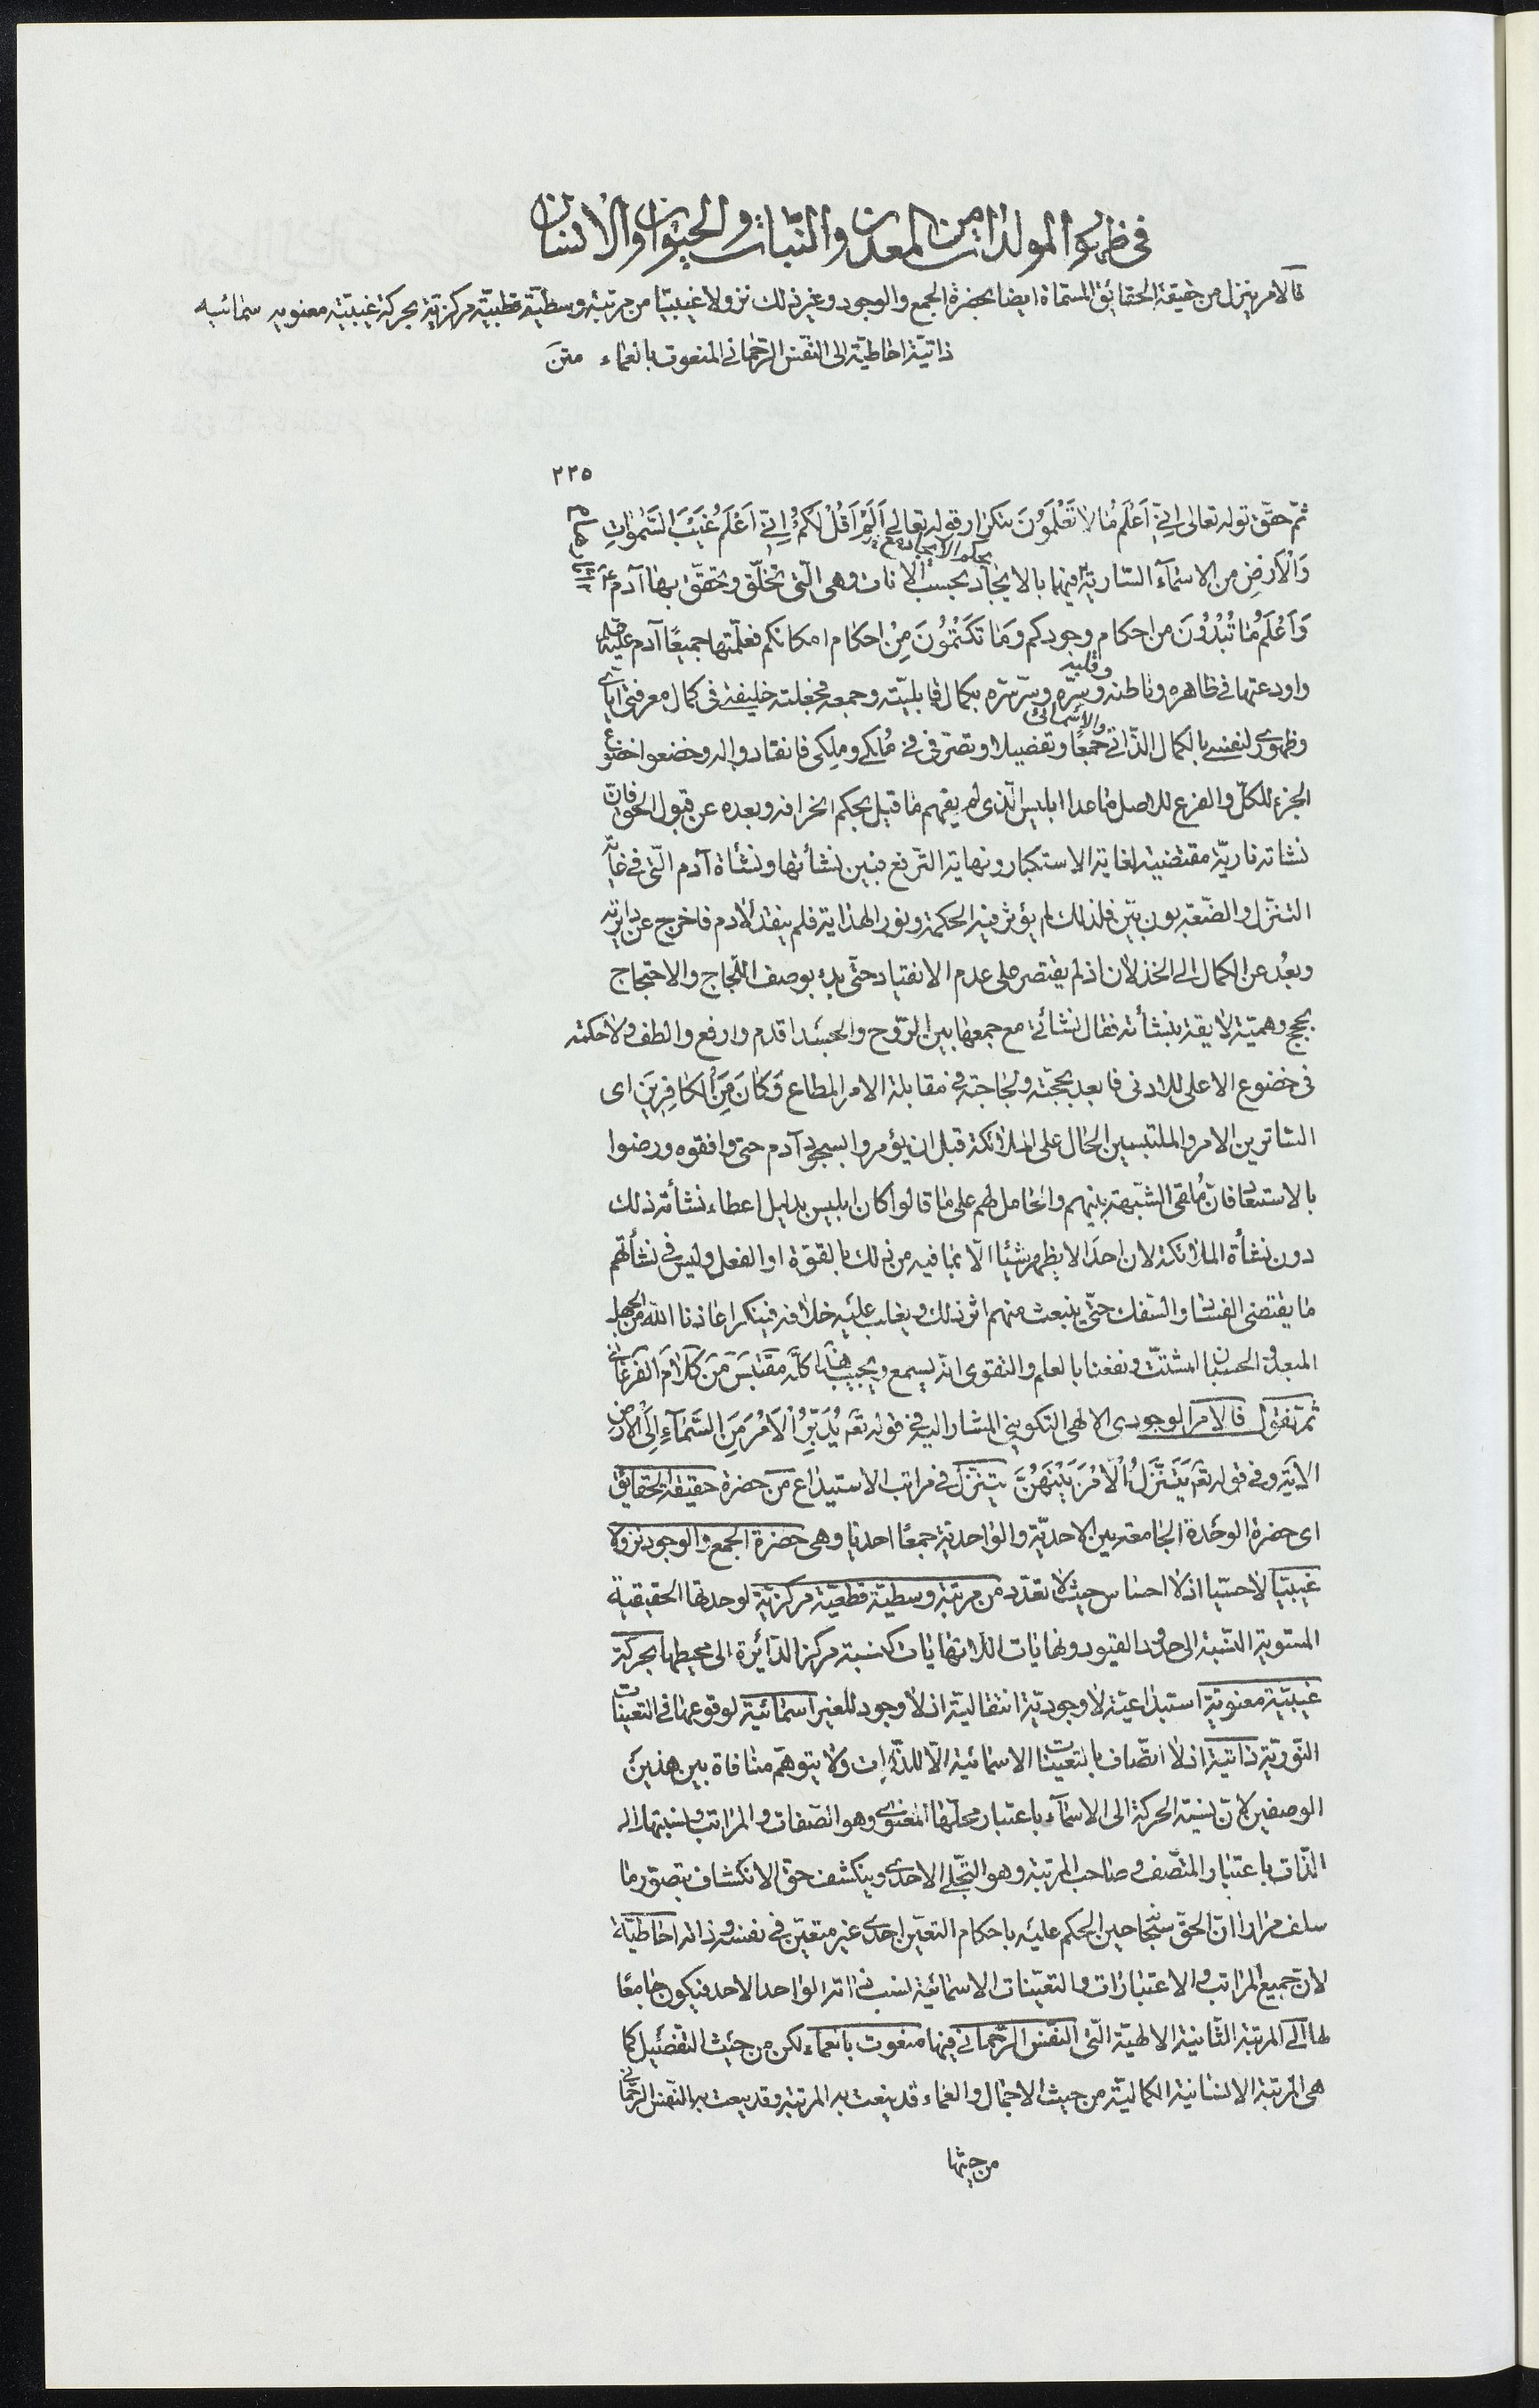 فى ظهور المولدات من المعدن والنبات والحيوان والانسان
فالامر ينزل من حقيقة الحقائق المسماة ايضا بحضرة الجمع والوجود وغير ذلك نزولا غيبيا من مرتبة وسطية قطبية مركزية بحركة غيبية معنويه سمائيه
ذاتية احاطية الى النفس الرحمانى المنعوت بالعماء متن
٢٢٥
ثم حقق قوله تعالى اِنّى اَعْلَمُ مٰا لا تَعْلَمُونَ بتكرار قوله تعالى اَلَمْ اَقُلْ لَكُمْ اِنّى اَعْلَمُ غَيْبَ السَّمٰوٰاتِ
بحكم الايجاد مع
وَالْاَرْضِ من الاسمآء السارية فيهما بالايجاد بحسب الانات وهى الّتى تخلّق وتحقّق بها آدم
وَاَعْلَمُ مٰا تُبْدُونَ من احكام وجودكم وَمٰا تَكْتُمُونَ مِنْ احكام امكانكم فعلّمتها جميعًا آدم عليه
وقلبه
واودعتها فى ظاهره وباطنه وسرّه وسرّ سرّه بكمال قابليّته وجمعه فجعلته خليفة فى كمال معرفتى اياى
والاسمائى
وظهورى لنفسى بالكمال الذّاتى جمعًا وتفصيلا وتصرّفى فى مُلكى وملِكى فانقادوا اله وخضعوا خضوع
الجزء للكلّ والفرع للاصل ماعدا ابليس الّذى لم يفهم ما قيل بحكم انحرافه وبعده عن قبول الحق فانّ
نشاته ناريّة مقتضية لغاية الاستكبار ونهاية الترفع فبين نشأتها ونشأة آدم الّتى فى غاية
التنزّل والضّعة بون بيّن فلذلك لم يؤثر فيه الحكمة ونور الهداية فلم ينقد لآدم فاخرج عن دايرته
وبعُد عن الكمال الى الخذلان اذ لم يقتصر على عدم الانقياد حتّى بدء بوصف اللّجاج والاحتجاج
بحجج وهميّة لايقة بنشأته فقال نشائى مع جمعها بين الرّوح والجسد اقدم وارفع والطف ولا حكمه
فى خضوع الاعلى للادنى فابعد بحجّته ولجاجته فى مقابلة الامر المطاع وَكٰانَ مِنَ الْكٰافِرينَ اى
الساترين الامر والملتبسين الحال على الملائكة قبل ان يؤمروا بسجود آدم حتى وافقوه ورضوا
بالاستبعاد فانّ مُلقى الشّبهة بينهم والحامل لهم على ما قالوا كان ابليس بدليل اعطاء نشأته ذلك
دون نشأة الملائكة لان احدا لا يظهر شيئا الّا بما فيه من ذلك بالقوّة او الفعل وليس فى نشأتهم
ما يقتضى الفساد والسّفك حتّى ينبعث منهم اثر ذلك ويغلب عليه خلافه فينكر اعاذنا الله من الجهل
المبعد والحسبان المشتّت ونفعنا بالعلم والتقوى انّه يسمع ويجيب هذا كلّه مقتبس من كلام الفرغانى
ثمّ نقول فالامر الوجودى الالهى التكوينى المشار اليه فى قوله تعٰ يُدَبِّرُ الْاَمْرَ مِنَ السَّمٰآءِ اِلَى الْاَرْضِ
الاية وفى قوله تعٰ يَتَنَزَّلُ الْاَمْرُ بَيْنَهُنَّ يتنزّل فى مراتب الاستيداع من حضرة حقيقة الحقايق
اى حضرة الوحدة الجامعة بين الاحديّة والواحدية جمعًا احديا وهى حضرة الجمع والوجود نزولا
غيبيّا لا حسّيا اذ لا احساس حيث لا تعدّد من مرتبة وسطيّة قطعيّة مركزيّة لوحدتها الحقيقية
المستوية النسبة الى حدود القيود ونهايات اللانهايات كنسبة مركز الدّائرة الى محيطها بحركة
غيبيّة معنويّة استيداعيّة لا وجوديّة انتقاليّة اذ لا وجود للغير اسمائيّة لوقوعها فى التعيّنات
النّوريّة ذاتية اذ لا اتّصاف بالتعيّنات الاسمائية الّا للذّات ولا يتوهّم منافاة بين هذين
الوصفين لانّ نسبة الحركة الى الاسمآء باعتبار محلّها المعنوى وهو الصّفات والمراتب ونسبتها الى
الذّات باعتبار المتّصف وصاحب المرتبة وهو التجلّى الاحدى وينكشف حقّ الانكشاف بتصوّر ما
سلف مرارا انّ الحقّ سبحانه حين الحكم عليه باحكام التعيّن احدى غير متعيّن فى نفسه وذاته احاطيّة
لانّ جميع المراتب والاعتبارات والتعيّنات الاسمائية لنسب ذاته الواحد الاحد فيكون جامعًا
لها الى المرتبة الثّانية الالهيّة الّتى النّفس الرّحمانى فيها منعوت بالعماء لكن من حيث التّفصيل كما
هى المرتبة الانسانية الكماليّة من حيث الاجمال والعماء قد ينعت به المرتبة وقد ينعت به النّفس الرّحمانى
من حيثها